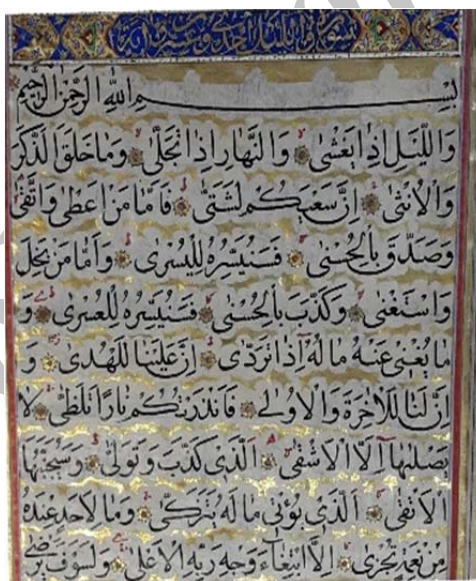 سورة والليل احدى وعشرون اية
بسم الله الرحمن الرحيم
وَاللَّيْلِ اِذَا يَغْشٰى وَالنَّهَارِ اِذَا تَجَلّٰى وَمَا خَلَقَ الذَّكَرَ
وَالْاُنْثٰى اِنَّ سَعْيَكُمْ لَشَتّٰى فَاَمَّا مَنْ اَعْطٰى وَاتَّقٰى
وَصَدَّقَ بِالْحُسْنٰى فَسَنُيَسِّرُهُ لِلْيُسْرٰى وَاَمَّا مَنْ بَخِلَ
وَاسْتَغْنٰى وَكَذَّبَ بِالْحُسْنٰى فَسَنُيَسِّرُهُ لِلْعُسْرٰى وَ
مَا يُغْنِى عَنْهُ مَالُهُ اِذَا تَرَدّٰى اِنَّ عَلَيْنَا لَلْهُدٰى وَ
اِنَّ لَنَا لَلْاٰخِرَةَ وَالْاُولٰى فَاَنْذَرْتُكُمْ نَارًا تَلَظّٰى لَا
يَصْلٰيهَا اِلَّا الْاَشْقٰى اَلَّذِى كَذَّبَ وَتَوَلّٰى وَسَيُجَنَّبُهَا
الْاَتْقٰى اَلَّذِى يُؤْتِى مَالَهُ يَتَزَكّٰى وَمَا لِاَحَدٍ عِنْدَهُ
مِنْ نِعْمَةٍ تُجْزٰى اِلَّا ابْتِغَاءَ وَجْهِ رَبِّهِ الْاَعْلٰى وَلَسَوْفَ يَرْضٰى